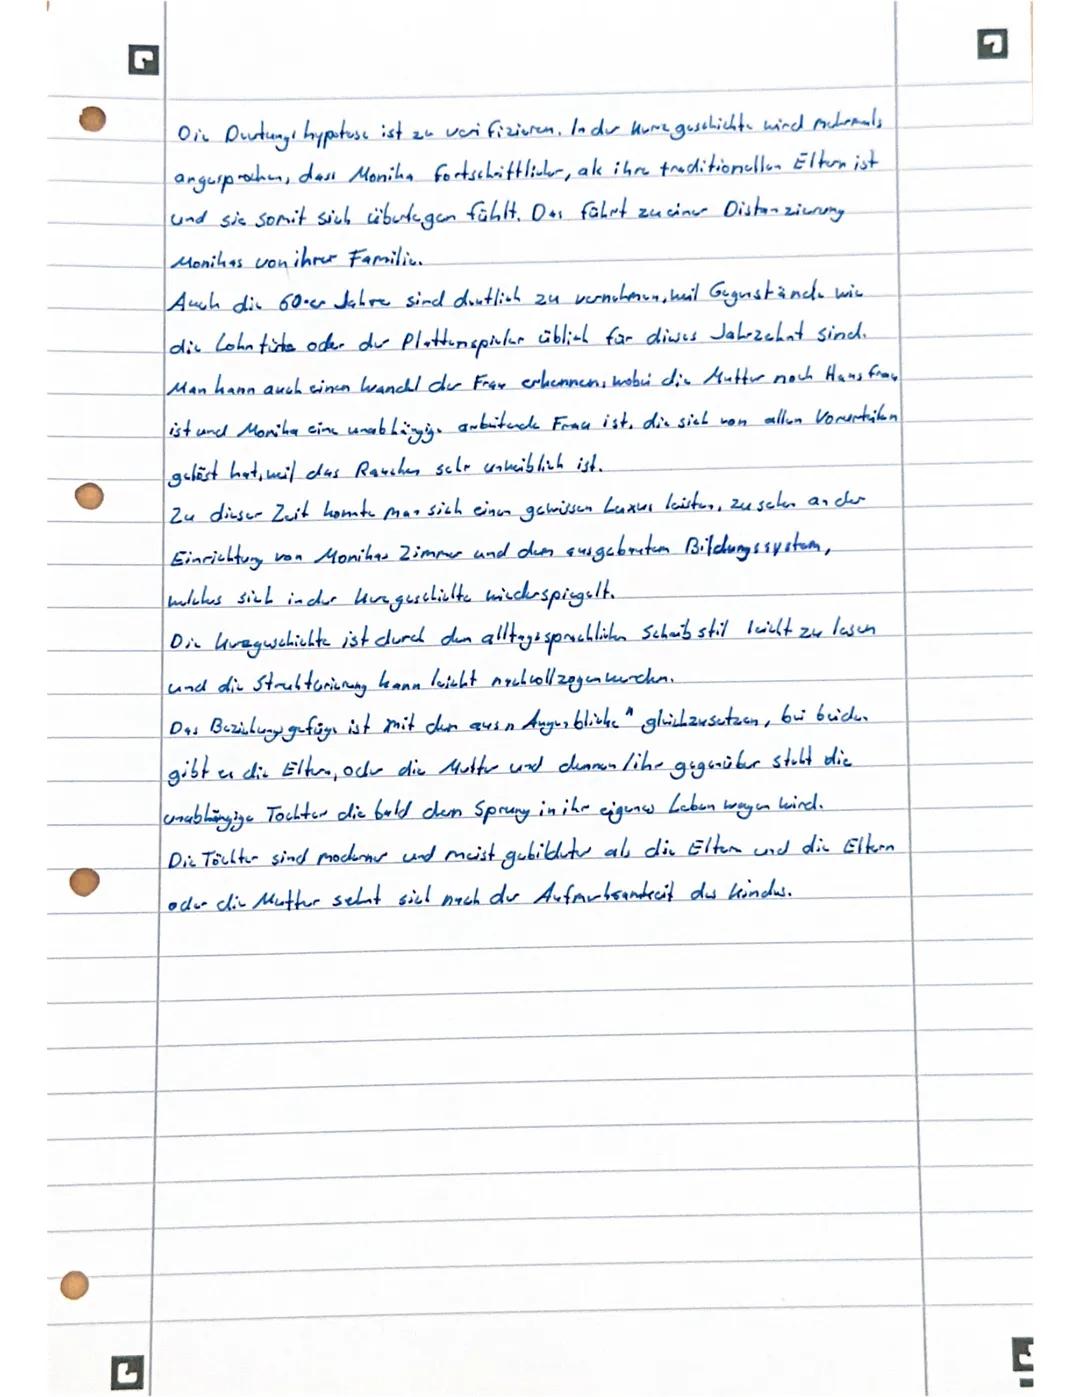 Die Deutungshypotese ist zu verifizieren. In der Kurzgeschichte wird mehrmals
angesprochen, dass Monika fortschrittlicher, als ihre traditionellen Eltern ist
und sie somit sich überlegen fühlt. Das führt zu einer Distanzierung
Monikas von ihrer Familie.
Auch die 60-er Jahre sind deutlich zu vernehmen, weil Gegenstände wie
die Lohntüte oder der Plattenspieler üblich für dieses Jahrzehnt sind.
Man kann auch einen Wandel der Frau erkennen, wobei die Mutter noch Hausfrau
ist und Monika eine unabhängige arbeitende Frau ist, die sich von allen Vorurteilen
gelöst hat, weil das Rauchen sehr unweiblich ist.
Zu dieser Zeit konnte man sich einen gewissen Luxus leisten, zu sehen an der
Einrichtung von Monikas Zimmer und dem ausgebreitem Bildungssystem,
welches sich in der Kurzgeschichte wiederspiegelt.
Die Kurzgeschichte ist durch den alltagssprachlichen Schreibstil leicht zu lesen
und die Strukturierung kann leicht nachvollzogen werden.
Das Beziehungsgefüge ist mit dem aus „Augenblicke" gleichzusetzen, bei beiden
gibt es die Eltern, oder die Mutter und dennen/ihr gegenüber steht die
unabhängige Tochter die bald den Sprung in ihr eigenes Leben wagen wird.
Die Töchter sind moderner und meist gebildeter als die Eltern und die Eltern
oder die Mutter sehnt sich nach der Aufmerksamkeit des Kindes.